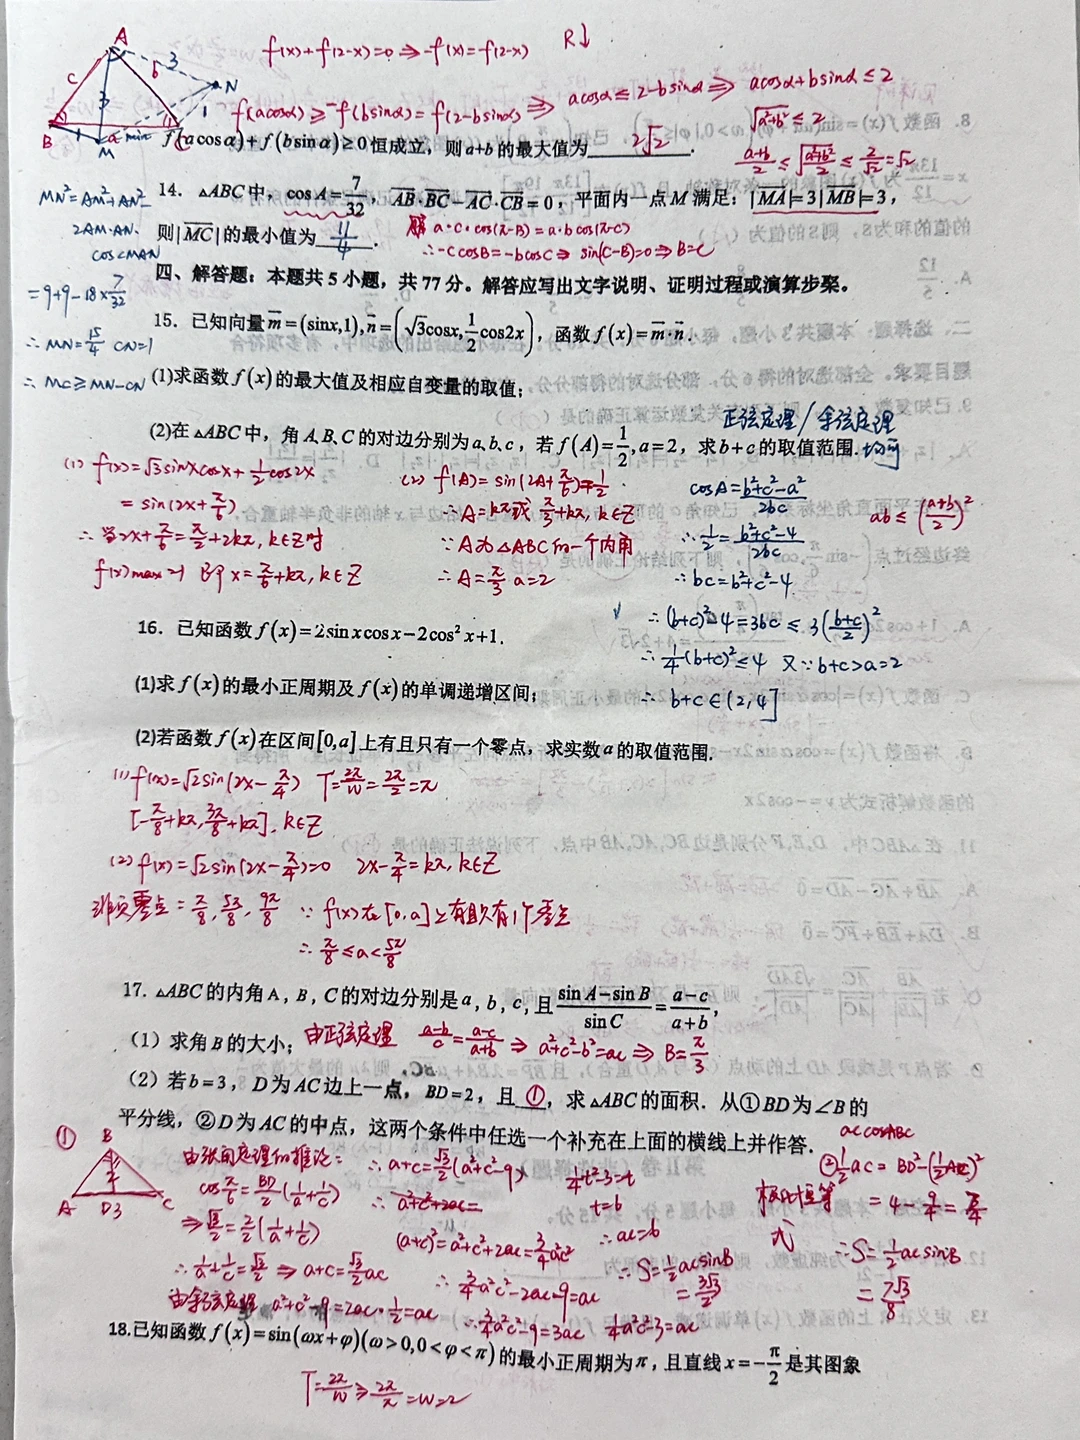 f(x)+f(2-x)=0⇒-f(x)=f(2-x) R↓
f(acosα)≥-f(bsinα)=f(2-bsinα)⇒ acosα≤2-bsinα⇒acosα+bsinα≤2
√(a²+b²)≤2
f(acosα)+f(bsinα)≥0恒成立，则a+b的最大值为 2√2 .
(a+b)/2≤√((a²+b²)/2)≤2/√2=√2
14. △ABC中，cosA=7/32，AB·BC-AC·CB=0，平面内一点M满足：|MA|=3|MB|=3，
则|MC|的最小值为 11/4 .
解 a·c·cos(π-B)=a·bcos(π-C)
∴-ccosB=-bcosC⇒sin(C-B)=0⇒B=C
MN²=AM²+AN²-
2AM·AN·
cos∠MAN
=9+9-18×7/32
∴MN=15/4 CN=1
∴MC≥MN-CN
四、解答题：本题共5小题，共77分。解答应写出文字说明、证明过程或演算步聚。
15. 已知向量m=(sinx,1),n=(√3cosx,1/2cos2x)，函数f(x)=m·n.
(1)求函数f(x)的最大值及相应自变量的取值；
正弦定理/余弦定理
均可
(2)在△ABC中，角A,B,C的对边分别为a,b,c，若f(A)=1/2,a=2，求b+c的取值范围.
(1) f(x)=√3sinxcosx+1/2cos2x
=sin(2x+π/6)
∴当2x+π/6=π/2+2kπ,k∈Z时
f(x)max=1 即x=π/6+kπ,k∈Z
(2) f(A)=sin(2A+π/6)=1/2
∴A=kπ或π/3+kπ,k∈Z
∵A为△ABC的一个内角
∴A=π/3 a=2
cosA=(b²+c²-a²)/2bc
ab≤((a+b)/2)²
∴1/2=(b²+c²-4)/2bc
∴bc=b²+c²-4
∴(b+c)²-4=3bc≤3((b+c)/2)²
∴1/4(b+c)²≤4 又∵b+c>a=2
∴b+c∈(2,4]
16. 已知函数f(x)=2sinxcosx-2cos²x+1.
(1)求f(x)的最小正周期及f(x)的单调递增区间；
(2)若函数f(x)在区间[0,a]上有且只有一个零点，求实数a的取值范围.
(1) f(x)=√2sin(2x-π/4) T=2π/W=2π/2=π
[-π/8+kπ,3π/8+kπ],k∈Z
(2) f(x)=√2sin(2x-π/4)=0 2x-π/4=kπ,k∈Z
非负零点=π/8,5π/8,9π/8 ∵f(x)在[0,a]上有且只有1个零点
∴π/8≤a<5π/8
17. △ABC的内角A，B，C的对边分别是a，b，c，且(sinA-sinB)/sinC=(a-c)/(a+b)，
（1）求角B的大小；由正弦定理 (a-b)/c=(a-c)/(a+b)⇒a²+c²-b²=ac⇒B=π/3
（2）若b=3，D为AC边上一点，BD=2，且 ① ，求△ABC的面积．从①BD为∠B的
平分线，②D为AC的中点，这两个条件中任选一个补充在上面的横线上并作答．
①
由张角定理的推论：
cosπ/6=BD/2(1/a+1/c)
⇒√3/2=2/2(1/a+1/c)
∴1/a+1/c=√3/2⇒a+c=√3/2ac
由余弦定理 a²+c²-9=2ac·1/2=ac
∴a+c=√3/2(a²+c²-9)
∴a²+c²+2ac=
(a+c)²=a²+c²+2ac=3/4a²c²
∴3/4a²c²-2ac-9=ac
∴3/4a²c²-9=3ac 1/4a²c²-3=ac
1/4t²-3=t
t=6
∴ac=6
∴S=1/2acsinB
=3√3/2
accosABC
②1/2ac=BD²-(1/2AC)²
极化恒等式
=4-9/4=7/4
∴S=1/2acsinB
=7√3/8
18.已知函数f(x)=sin(ωx+φ)(ω>0,0<φ<π)的最小正周期为π，且直线x=-π/2是其图象
T=2π/W⇒2π/π=W=2